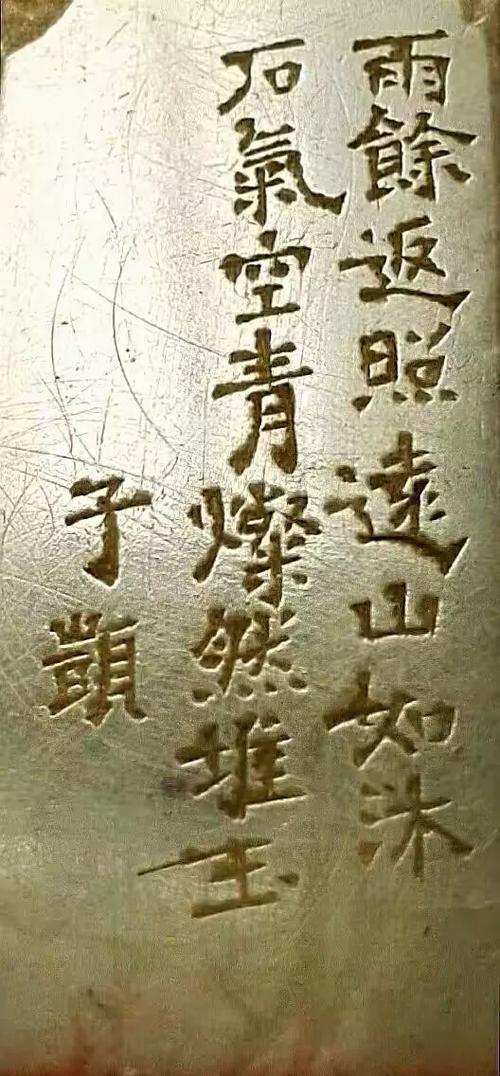 雨餘返照遠山如沐
石氣空青燦然堆玉
子顗